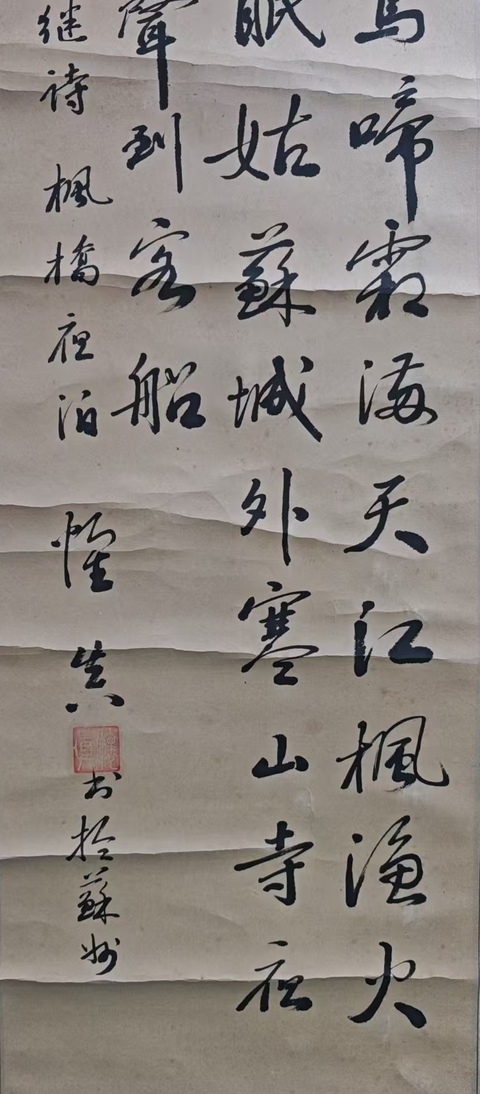 烏啼霜滿天江楓漁火
眠姑蘇城外寒山寺夜
聲到客船
继詩楓橋夜泊
真
书於蘇州